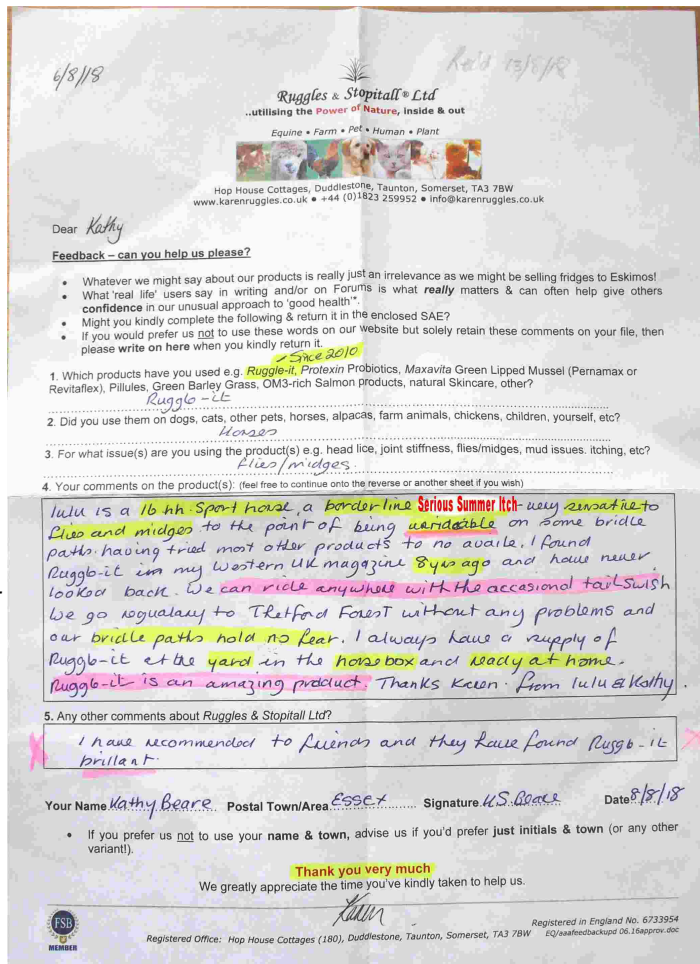 6/8/18
Rec'd 13/8/18
Ruggles & Stopitall® Ltd
..utilising the Power of Nature, inside & out
Equine • Farm • Pet • Human • Plant
Hop House Cottages, Duddlestone, Taunton, Somerset, TA3 7BW
www.karenruggles.co.uk • +44 (0)1823 259952 • info@karenruggles.co.uk
Dear Kathy
Feedback – can you help us please?
• Whatever we might say about our products is really just an irrelevance as we might be selling fridges to Eskimos!
• What 'real life' users say in writing and/or on Forums is what really matters & can often help give others
confidence in our unusual approach to 'good health'*.
• Might you kindly complete the following & return it in the enclosed SAE?
• If you would prefer us not to use these words on our website but solely retain these comments on your file, then
please write on here when you kindly return it.
✓ Since 2010
1. Which products have you used e.g. Ruggle-it, Protexin Probiotics, Maxavita Green Lipped Mussel (Pernamax or
Revitaflex), Pillules, Green Barley Grass, OM3-rich Salmon products, natural Skincare, other?
Ruggle-it
2. Did you use them on dogs, cats, other pets, horses, alpacas, farm animals, chickens, children, yourself, etc?
Horses
3. For what issue(s) are you using the product(s) e.g. head lice, joint stiffness, flies/midges, mud issues. itching, etc?
flies/midges.
4. Your comments on the product(s): (feel free to continue onto the reverse or another sheet if you wish)
lulu is a 16 hh. Sport horse, a borderline Serious Summer Itch - very sensative to
flies and midges to the point of being unridable on some bridle
paths. having tried most other products to no availe. I found
Ruggle-it in my Western UK magazine 8yrs ago and have never
looked back. We can ride anywhere with the accasional tail swish
We go regualary to Thetford Forest without any problems and
our bridle paths hold no fear. I always have a supply of
Ruggle-it at the yard in the horsebox and ready at home.
Ruggle-it is an amazing product. Thanks Karen. from lulu & Kathy.
5. Any other comments about Ruggles & Stopitall Ltd?
I have recommended to friends and they have found Ruggle-it
brillant.
Your Name Kathy Beare Postal Town/Area ESSEX Signature K.S. Beare Date 8/8/18
• If you prefer us not to use your name & town, advise us if you'd prefer just initials & town (or any other
variant!).
Thank you very much
We greatly appreciate the time you've kindly taken to help us.
Karen
FSB
MEMBER
Registered in England No. 6733954
Registered Office: Hop House Cottages (180), Duddlestone, Taunton, Somerset, TA3 7BW EQ/aaafeedbackupd 06.16approv.doc